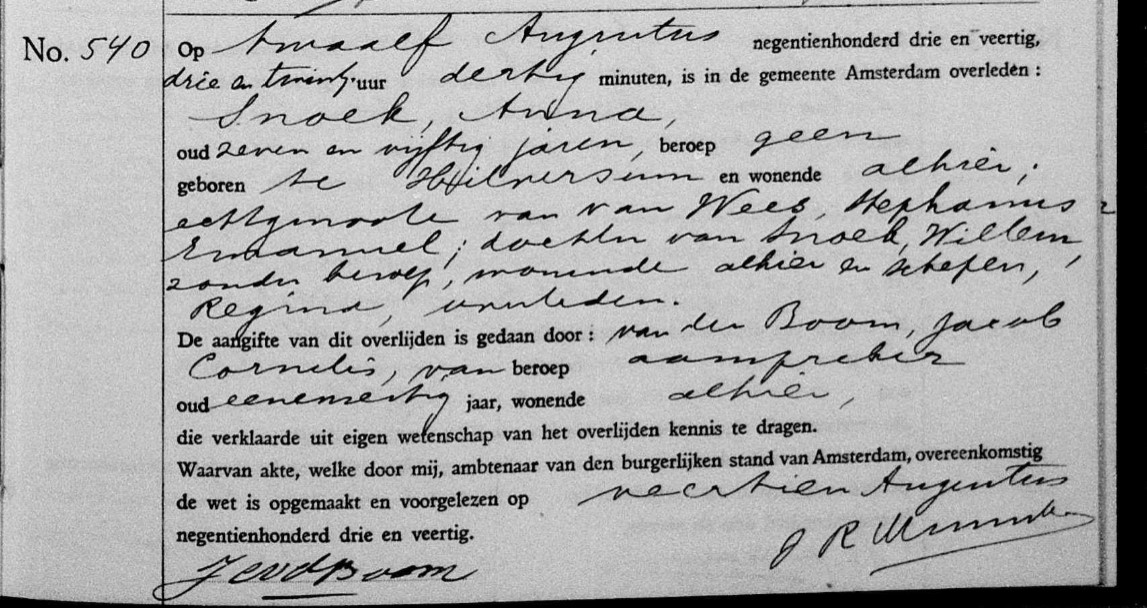 No. 540 Op twaalf Augustus negentienhonderd drie en veertig,
drie en twintig uur dertig minuten, is in de gemeente Amsterdam overleden :
Snoek, Anna,
oud zeven en vijftig jaren, beroep geen
geboren te Hilversum en wonende alhier;
echtgenoote van van Wees, Stephanus
Emanuel; dochter van Snoek, Willem,
zonder beroep, wonende alhier en Schefen,
Regina, overleden.
De aangifte van dit overlijden is gedaan door : van der Boom, Jacob
Cornelis, van beroep aanspreker
oud eenenveertig jaar, wonende alhier,
die verklaarde uit eigen wetenschap van het overlijden kennis te dragen.
Waarvan akte, welke door mij, ambtenaar van den burgerlijken stand van Amsterdam, overeenkomstig
de wet is opgemaakt en voorgelezen op veertien Augustus
negentienhonderd drie en veertig.
JCvdBoom J R